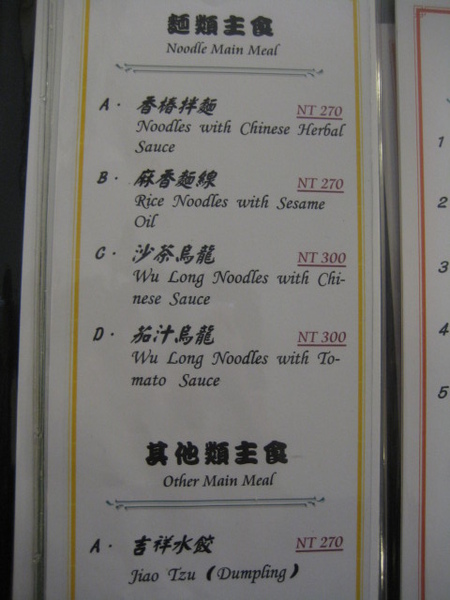 麵類主食
Noodle Main Meal
A. 香椿拌麵 NT 270
Noodles with Chinese Herbal
Sauce
B. 麻香麵線 NT 270
Rice Noodles with Sesame
Oil
C. 沙茶烏龍 NT 300
Wu Long Noodles with Chi-
nese Sauce
D. 茄汁烏龍 NT 300
Wu Long Noodles with To-
mato Sauce
其他類主食
Other Main Meal
A. 吉祥水餃 NT 270
Jiao Tzu (Dumpling)
1
2
3
4
5